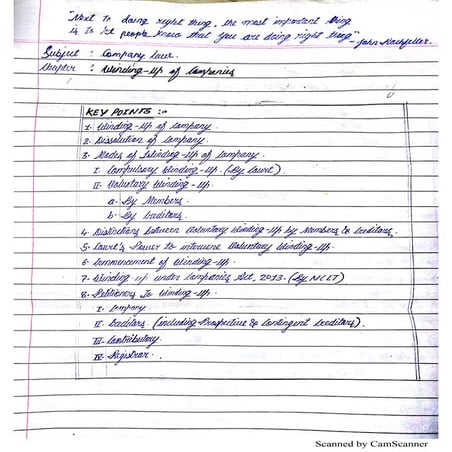 "Next to doing right thing, the most important thing
is to let people know that you are doing right thing" - John Rockfeller.
Subject : Company Law.
Chapter : Winding-up of Companies
KEY POINTS :-
1. Winding-up of Company.
2. Dissolution of Company.
3. Modes of Winding-up of Company.
I. Compulsory Winding-up. (By Court)
II. Voluntary Winding-up.
a. By Members.
b. By Creditors.
4. Distinctions between Voluntary Winding-up by Members & Creditors.
5. Court's Power to intervene Voluntary Winding-up.
6. Commencement of Winding-up.
7. Winding up under Companies Act, 2013. (By NCLT)
8. Petitioners to Winding-up.
I. Company.
II. Creditors. (including Prospective & Contingent Creditors).
III. Contributory.
IV. Registrar.
Scanned by CamScanner